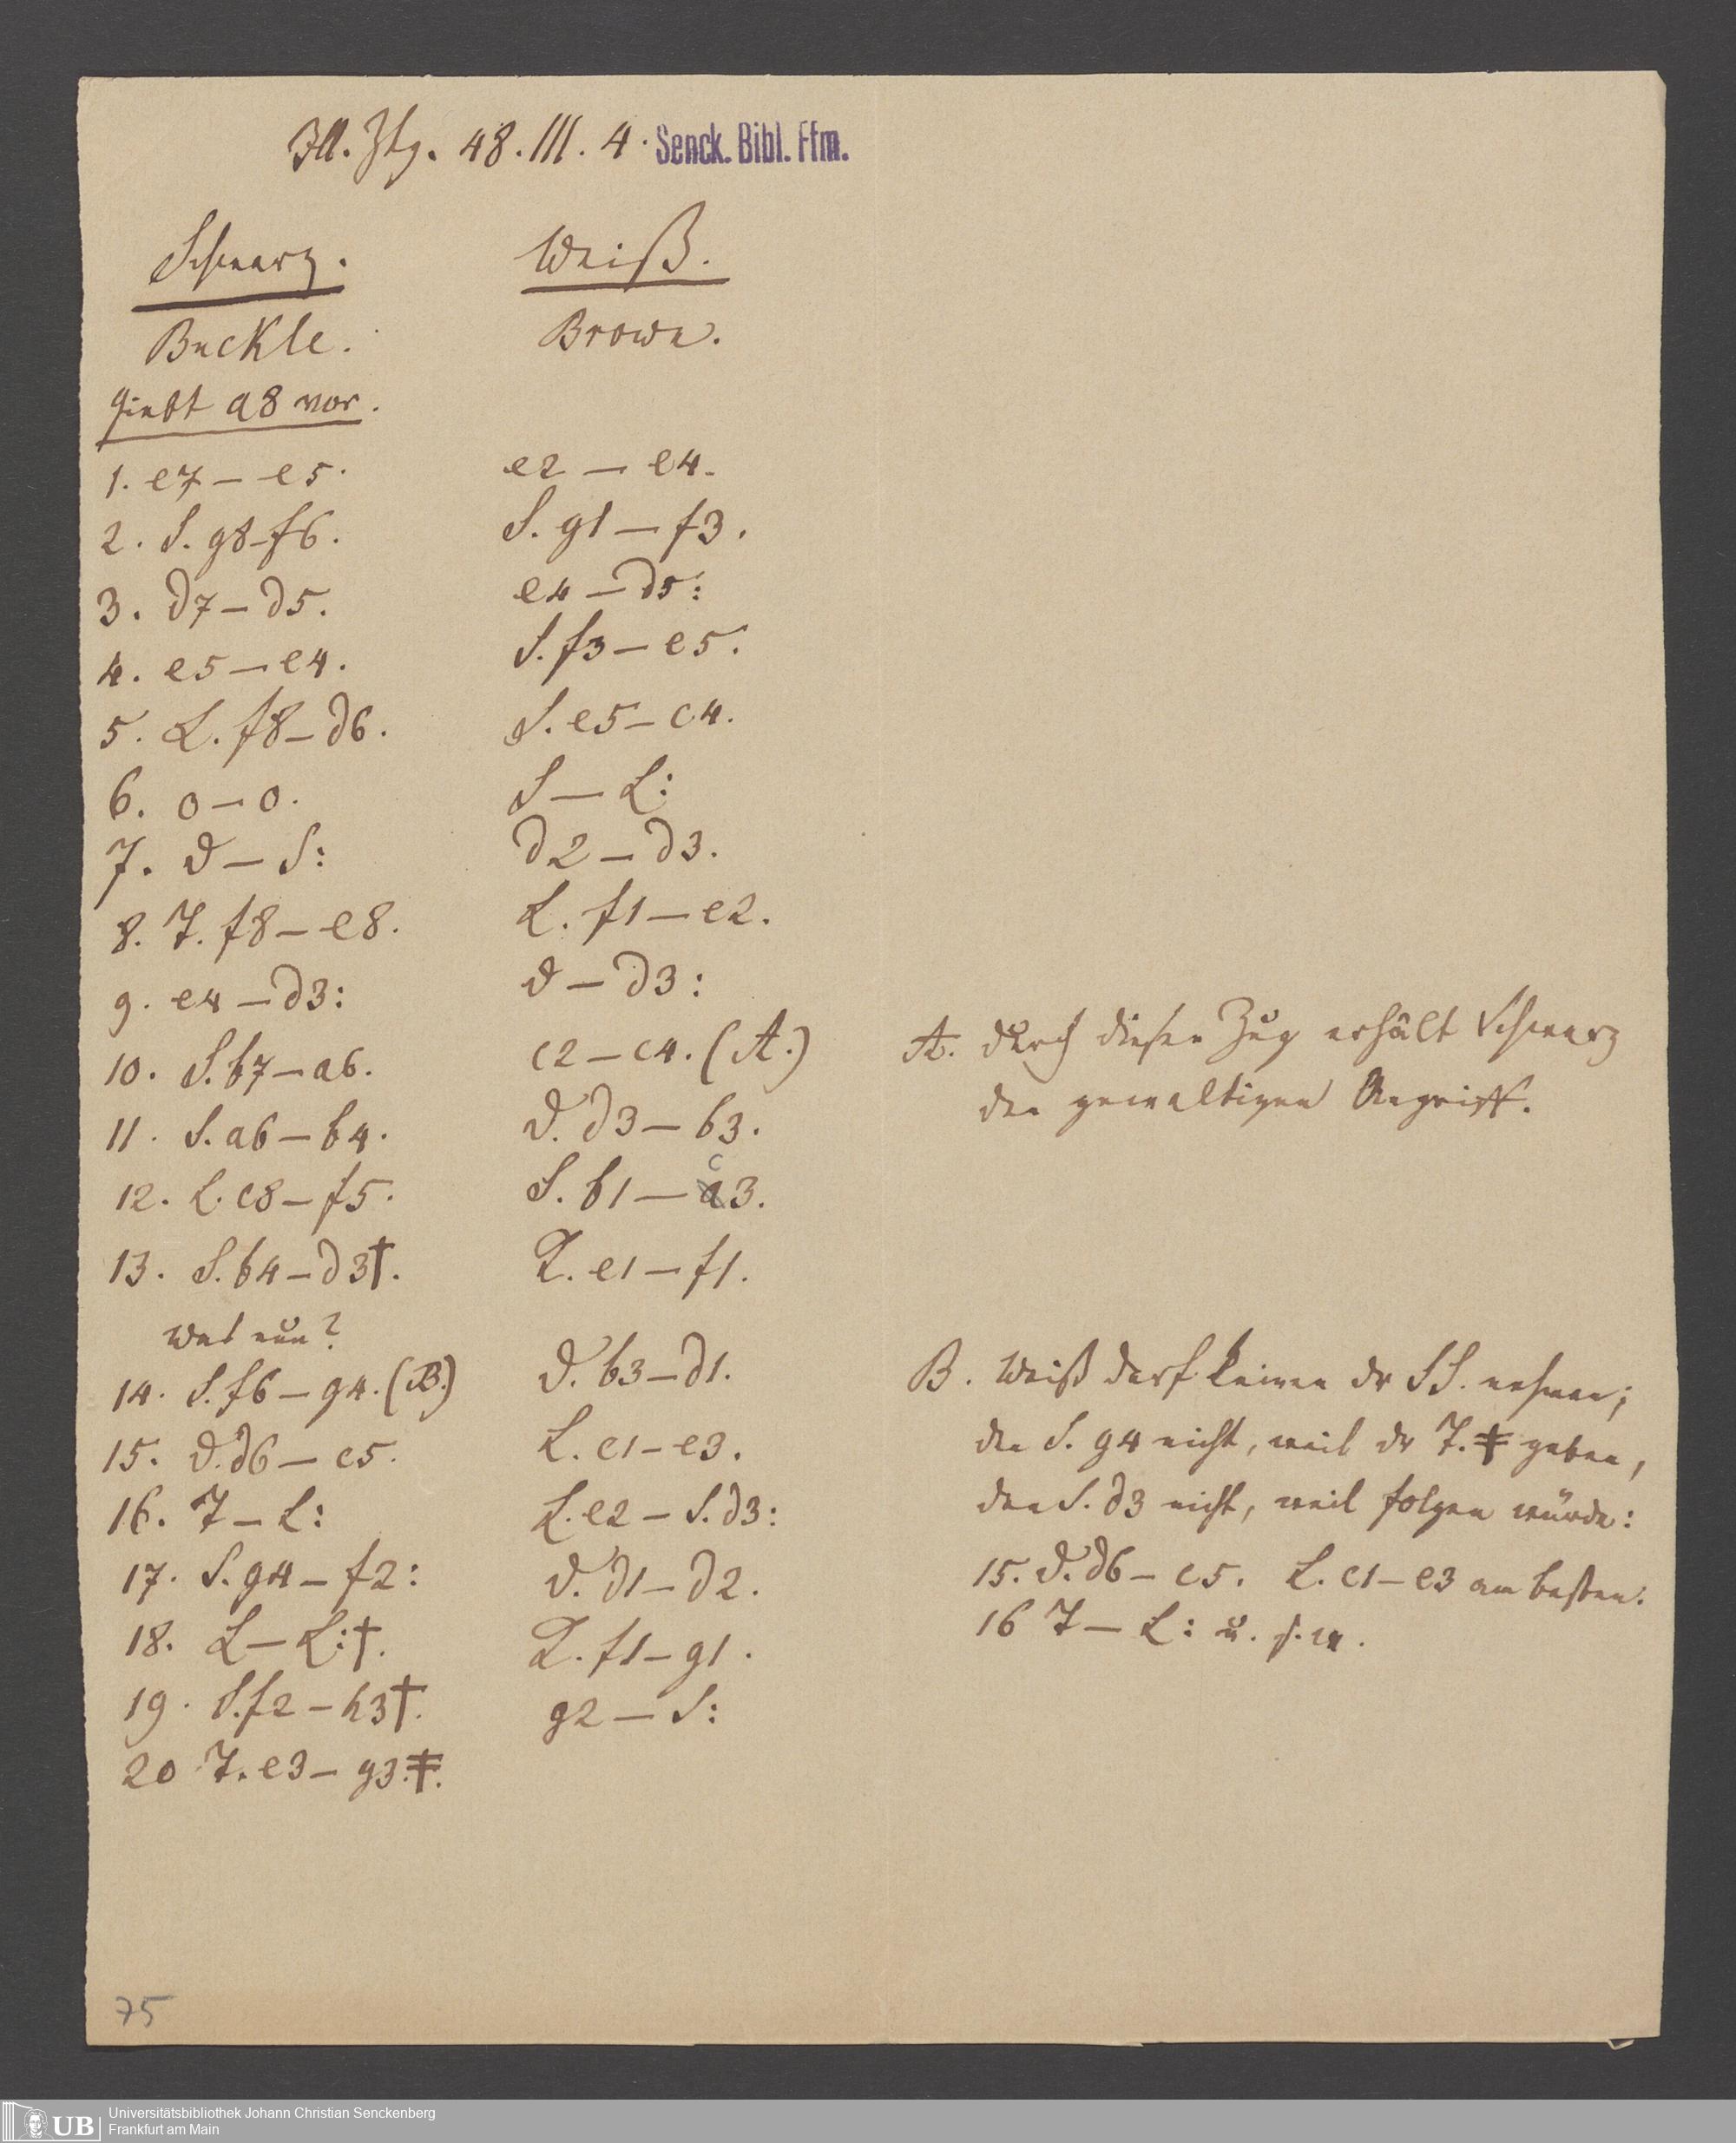 Ill. Ztg. 48. III. 4. Senck. Bibl. Ffm.
Schwarz. Weiß.
Buckle. Brown.
giebt a8 vor.
1. e7 — e5. e2 — e4.
2. S. g8 — f6. S. g1 — f3.
3. d7 — d5. e4 — d5:
4. e5 — e4. S. f3 — e5.
5. L. f8 — d6. S. e5 — c4.
6. o — o. S — L:
7. D — S: d2 — d3.
8. T. f8 — e8. L. f1 — e2.
9. e4 — d3: D — d3:
10. S. b7 — a6. c2 — c4. (A.)
A. durch diesen Zug erhält Schwarz
den gewaltigen Angriff.
11. S. a6 — b4. D. d3 — b3.
12. L. c8 — f5. S. b1 — a3. c
13. S. b4 — d3†. K. e1 — f1.
was nun?
14. S. f6 — g4. (B.) D. b3 — d1.
B. Weiß darf keinen der SS. nehmen;
den S. g4 nicht, weil der T. ‡ geben,
den S. d3 nicht, weil folgen würde:
15. D. d6 — c5. L. c1 — e3 am besten.
16 T — L: u. s. w.
15. D. d6 — c5. L. c1 — e3.
16. T — L: L. e2 — S. d3:
17. S. g4 — f2: D. d1 — d2.
18. L — L:†. K. f1 — g1.
19. S. f2 — h3†. g2 — S:
20 T. e3 — g3.‡.
75
UB Universitätsbibliothek Johann Christian Senckenberg
Frankfurt am Main